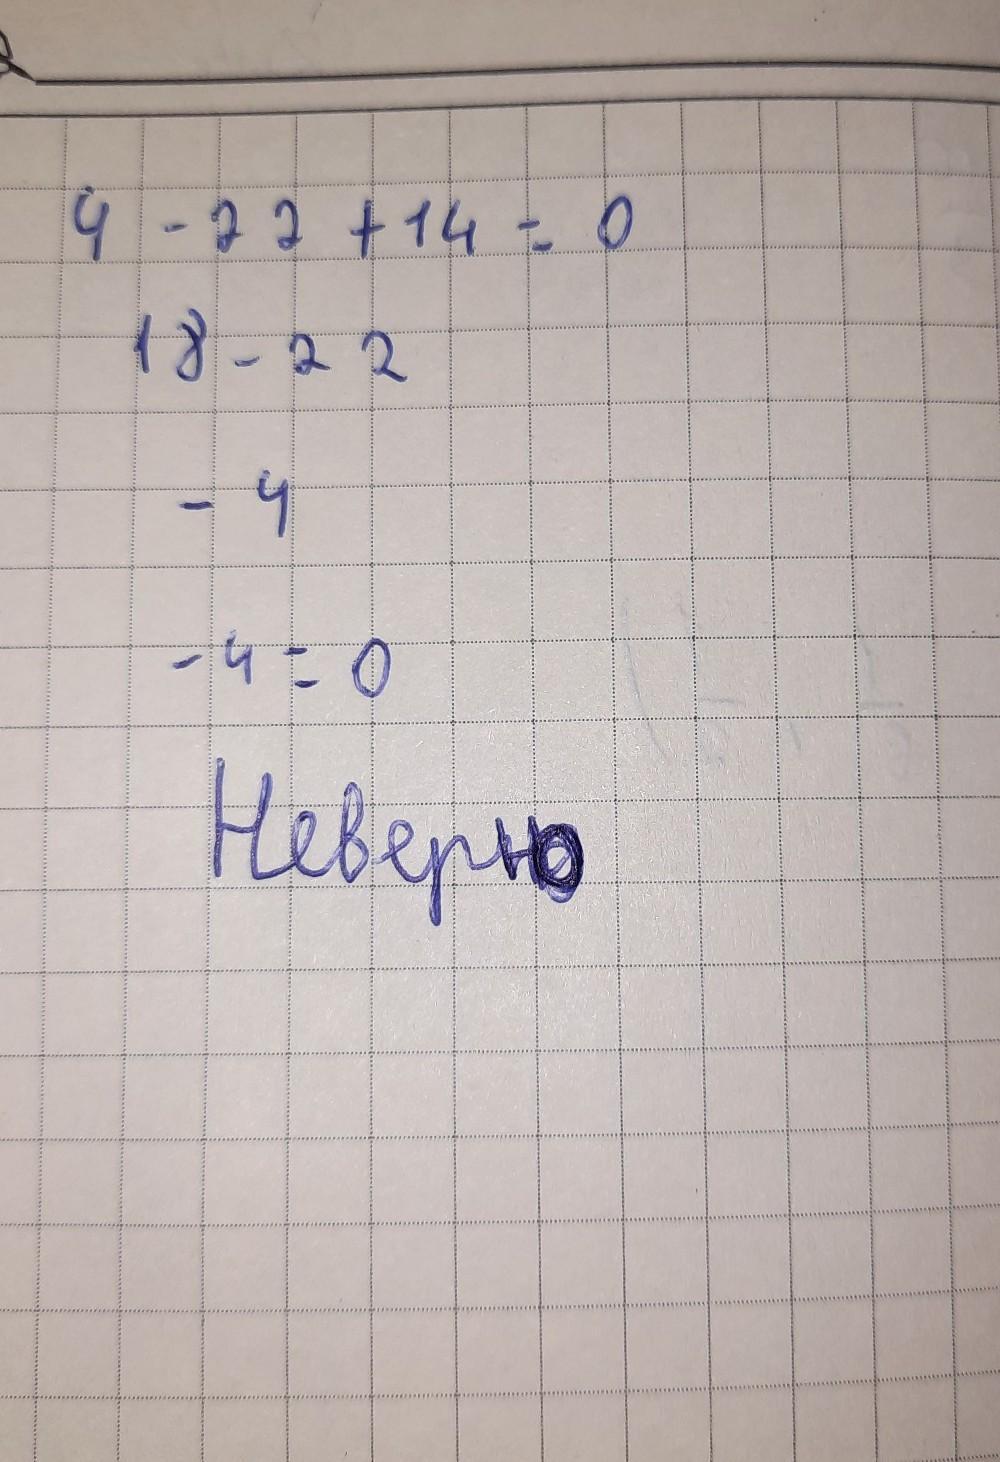 4 - 22 + 14 = 0
18 - 22
- 4
- 4 = 0
Неверно